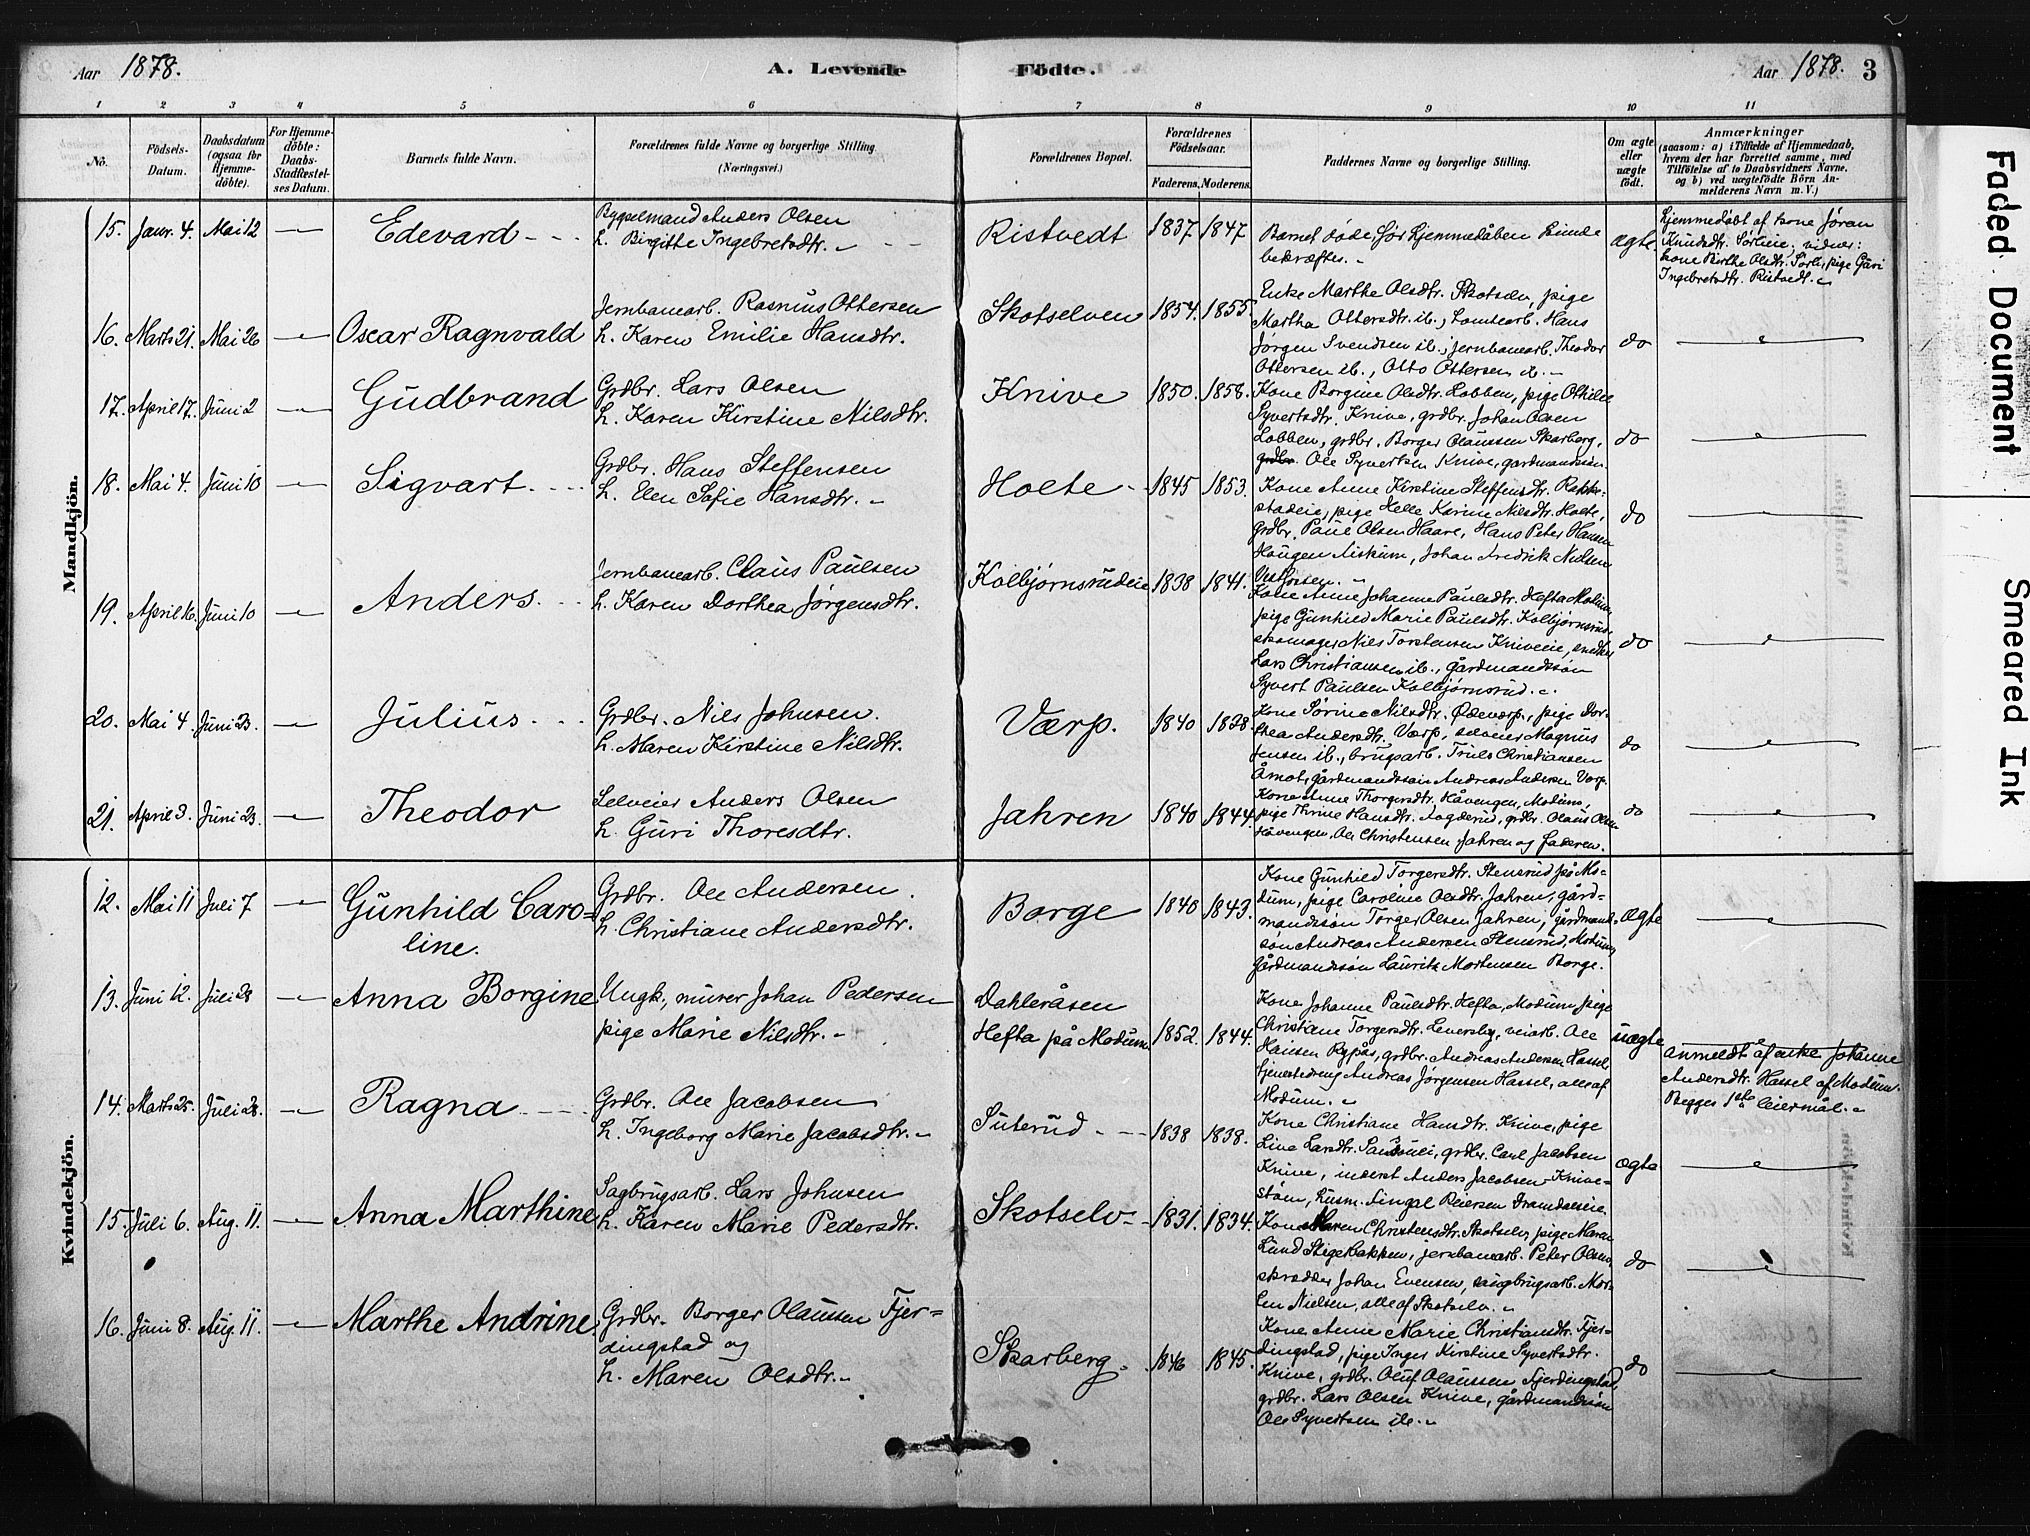 Aar 1878. A. Levende Födte. Aar 1878. 3
1 2 3 4 5 6 7 8 9 10 11
No.
Födsels-Datum.
Daabsdatum (ogsaa for Hjemme-döbte).
For Hjemme-döbte: Daabs-Stadfæstel-ses Datum.
Barnets fulde Navn.
Forældrenes fulde Navne og borgerlige Stilling. (Næringsvei.)
Forældrenes Bopæl.
Forældrenes Födselsaar.
Faderens. Moderens.
Faddernes Navne og borgerlige Stilling.
Om ægte eller uægte födt.
Anmærkninger
(saasom: a) i Tilfælde af Hjemmedaab,
hvem der har forrettet samme, med
Tilföielse af to Daabsvidners Navne,
og b) ved uægtefödte Börn An-
melderens Navn m. V.)
Mandkjön.
15. Janr. 4. Mai 12 Edevard
Bygselmand Anders Olsen
h. Birgitte Ingebretsdtr.
Ristvedt 1837. 1847
Barnet døde før hjemmedåben kunde
bekræftes.
ægte
hjemmedøbt af kone Jøran
Knudsdtr. Sørlie; vidner:
kone Birthe Olsdtr. Sørli, pige Guri
Ingebretsdtr. Ristvedt.
16. Marts 21. Mai 26 Oscar Ragnvald
Jernbanearb. Rasmus Ottersen
h. Karen Emilie Hansdtr.
Skotselven 1854. 1855.
Enke Marthe Olsdtr. Skotselv, pige
Martha Ottersdtr. ib., tomtearb. Hans
Jørgen Svendsen ib., jernbanearb. Theodor
Ottersen ib., Otto Ottersen ib.
do
17. April 17. Juni 2 Gudbrand
Grdbr. Lars Olsen
h. Karen Kirstine Nilsdtr.
Knive 1850. 1858.
Kone Borgine Olsdtr. Lobben, pige Othilie
Syvertsdtr. Knive, grdbr. Johan Olsen
Lobben, grdbr. Borger Olaussen Skarberg,
grdbr. Ole Syvertsen Knive, gardmandssøn.
do
18. Mai 4. Juni 10 Sigvart
Grdbr. Hans Steffensen
h. Elen Sofie Hansdtr.
Holte 1845 1853.
Kone Anne Kirstine Steffensdtr. Rakke-
stadeie, pige Helle Karine Nilsdtr. Holte,
grdbr. Paul Olsen Haare, Hans Peter Hansen
Haugen Fiskum, Johan Fredrik Nielsen
Vestfossen.
do
19. April 16. Juni 10 Anders
Jernbanearb. Claus Paulsen
h. Karen Dorthea Jørgensdtr.
Kolbjørnsrudeie 1838 1841.
Kone Anne Johanne Paulsdtr. Hefta Modum,
pige Gunhild Marie Paulsdtr. Kolbjørnsrud,
skomager Nils Torstensen Kniveeie, snedker
Lars Christiansen ib., gårdmandssøn
Syvert Paulsen Kolbjørnsrud.
do
20. Mai 4. Juni 23. Julius
Grdbr. Nils Johnsen.
h. Maren Kirstine Nilsdtr.
Værp. 1840 1838.
Kone Sørine Nilsdtr. Ødeværp, pige Dor-
thea Andersdtr. Værp, selveier Magnus
Jensen ib., brugsarb. Truls Christiansen
Åmot, gårdmandssøn Andreas Andersen Værp.
do
21. April 3. Juni 23. Theodor
Selveier Anders Olsen
h. Guri Thoresdtr.
Jahren 1840 1844.
Kone Anne Thorgersdtr. Håvengen, Modum,
pige Thrine Hansdtr. Fogderud, grdbr. Olaus Olsen
Håvengen, Ole Christensen Jahren og faderen.
do
Kvindekjön.
12. Mai 11 Juli 7 Gunhild Caro=
line.
Grdbr. Ole Andersen.
h. Christiane Andersdtr.
Borge 1840 1843.
Kone Gunhild Torgersdtr. Stensrud på Mo-
dum, pige Caroline Olsdtr. Jahren, gård-
mandssøn Torger Olsen Jahren, gårdmands-
søn Andreas Andersen Stensrud, Modum,
gårdmandssøn Lauritz Mortensen Borge.
ægte
13. Juni 12. Juli 28 Anna Borgine
Ungk., murer Johan Pedersen
pige Marie Nilsdtr.
Dahleråsen
Hefta på Modum 1852. 1844.
Kone Johanne Paulsdtr. Hefta, Modum, pige
Christiane Torgersdtr. Leversby, veiarb. Ole
Hansen Rypås, grdbr. Andreas Andersen Hassel,
tjenestedreng Andreas Jørgensen Hassel, alle af
Modum.
uægte
anmeldt af enke Johanne
Andersdtr. Hassel af Modum.
Begges 1ste leiermål.
14. Marts 25. Juli 28. Ragna
Grdbr. Ole Jacobsen
h. Ingeborg Marie Jacobsdtr.
Suterud 1838 1838.
Kone Christiane Hansdtr. Knive, pige
Line Larsdtr. grdbr. Carl Jacobsen
Knive, inderst Anders Jacobsen Knive-
støen, husm. Fingal Reiersen
ægte
15. Juli 6. Aug. 11. Anna Marthine
Sagbrugsarb. Lars Johnsen
h. Karen Marie Pedersdtr.
Skotselv 1831. 1834.
Kone Maren Christensdtr. Skotselv, pige Maren
Lund Stigerbakken, jernbanearb. Peter Olsen,
skredder Johan Evensen, saugbrugsarb. Mor-
ten Nielsen, alle af Skotselv.
do
16. Juni 8. Aug. 11. Marthe Andrine
Grdbr. Borger Olaussen Fjer=
dingstad og
h. Maren Olsdtr.
Skarberg. 1846 1845.
Kone Anne Marie Christiansdtr. Fjer-
dingstad, pige Inger Kirstine Syvertsdtr.
Knive, grdbr. Oluf Olaussen Fjerdingstad,
grdbr. Lars Olsen Knive, gårdmandssøn
Ole Syvertsen ib.
do
Faded Document
Smeared Ink